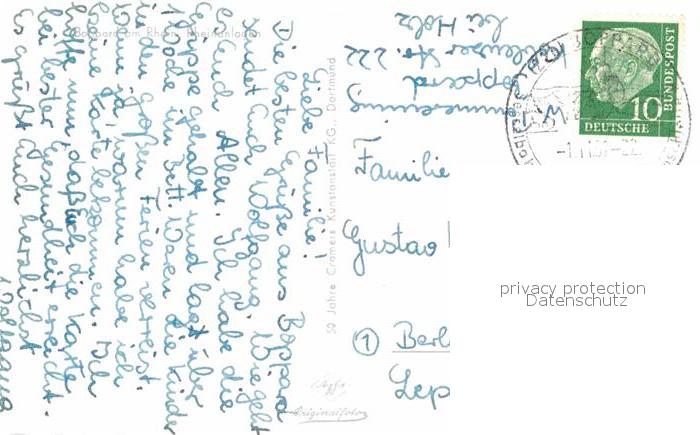 Boppard am Rhein, Rheinanlagen
Liebe Familie!
Die besten Grüße aus Boppard
sendet Euch Wolfgang Wiegelt
Euch Allen. Ich habe die
Grippe gehabt und lag über
1 Woche im Bett. Waren die Kinder
in den großen Ferien verreist
wenn ja, warum habe ich
keine Karte bekommen. Ich
hoffe nun, daß Euch die Karte
bei bester Gesundheit erreicht.
Es grüßt Euch herzlichst
Wolfgang
50 Jahre Cramers Kunstanstalt KG., Dortmund
Boppard
Str. 222
bei Holz
Familie
Gustav
(1) Berl
Lep
Originalfoto
BOPPARD
DEUTSCHE
BUNDESPOST
10
privacy protection
Datenschutz